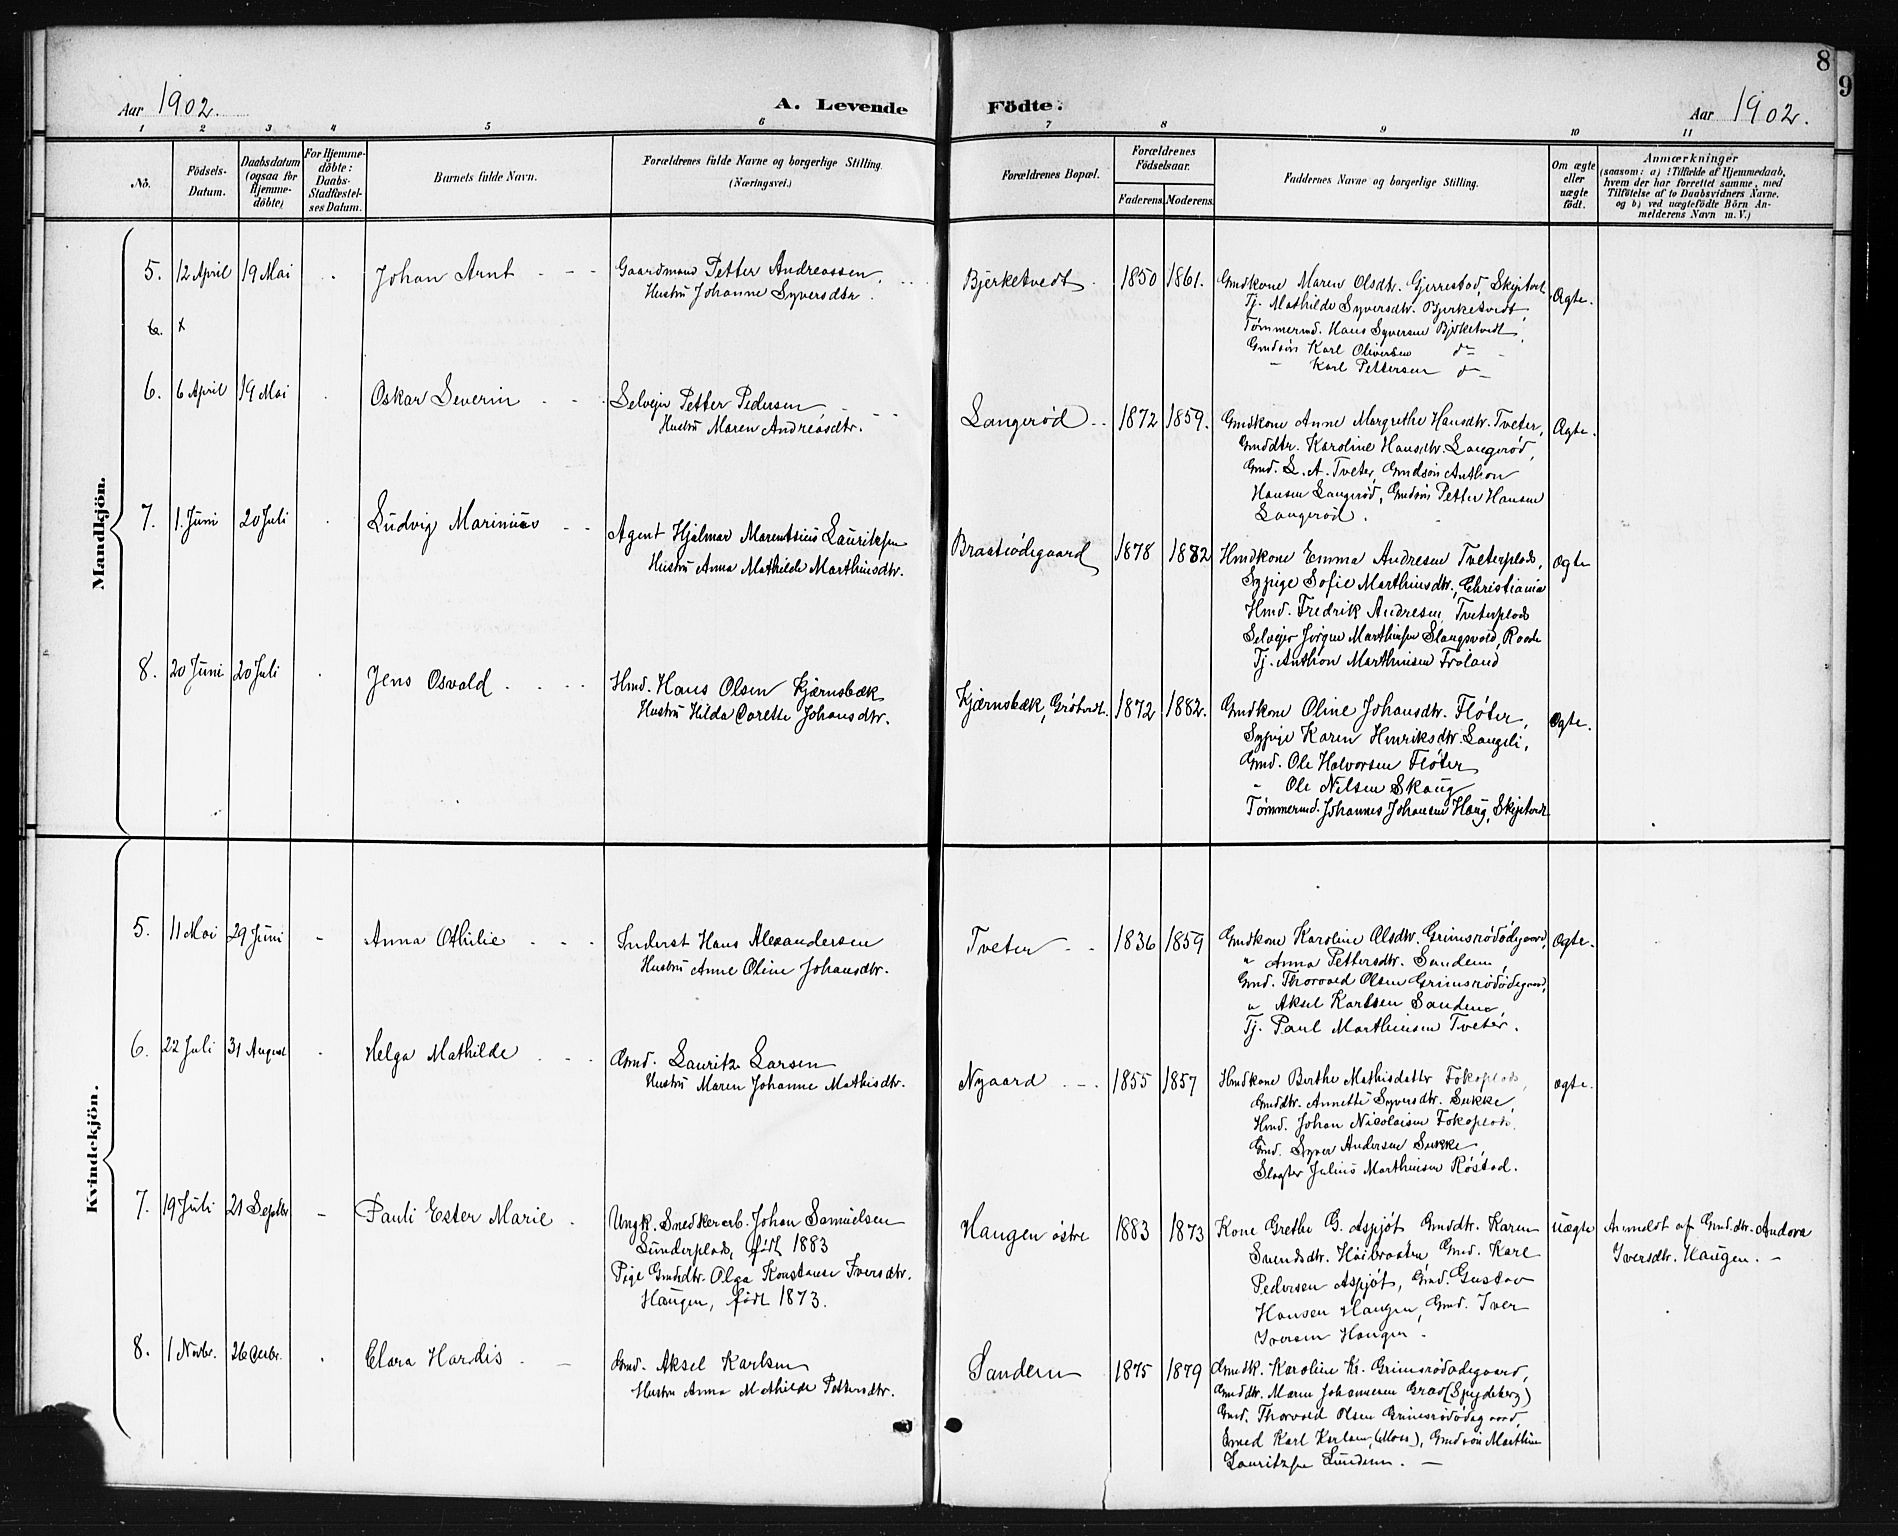 8
9
Aar 1902.
A. Levende
Födte.
Aar 1902.
1 2 3 4 5 6 7 8 9 10 11
No.
Födsels-
Datum.
Daabsdatum
(ogsaa for
Hjemme-
döbte)
For Hjemme-
döbte:
Daabs-
Stadfæstel-
ses Datum.
Barnets fulde Navn.
Forældrenes fulde Navne og borgerlige Stilling
(Næringsvei.)
Forældrenes Bopæl.
Forældrenes
Födselsaar.
Faderens. Moderens.
Faddernes Navne og borgerlige Stilling.
Om ægte
eller
uægte
födt.
Anmærkninger
(saasom: a) i Tilfælde af Hjemmedaab,
hvem der har forrettet samme, med
Tilföielse af to Daabsvidners Navne.
og b) ved uægtefödte Börn An-
melderens Navn m. V.)
Mandkjön.
5. 12 April 19 Mai Johan Arnt
Gaardmand Petter Andreassen,
Hustru Johanne Syversdtr.
Bjerketvedt 1850 1861.
Gmdkone Maren Olsdtr. Gjerrestad, Skjptvet
Tj. Mathilde Syversdtr. Bjerketvedt,
Tømmermd. Hans Syversen Bjerketvedt,
Gmdsøn Karl Oliversen do
" Karl Pettersen do
Ægte.
6. x
6. 6 April 19 Mai Oskar Severin
Selveier Petter Pedersen
Hustru Maren Andreasdtr.
Langerød 1872 1859.
Gmdkone Anne Margrethe Hansdtr. Tveter,
Gmddtr. Karoline Hansdtr. Langerød,
Gmd. L. A. Tveter, Gmdsøn Anthon
Hansen Langerød, Gmdsøn Petter Hansen
Langerød.
Ægte.
7. 1. Juni 20 Juli Ludvig Marinius
Agent Hjalmar Marentsius Lauritzsen
Hustru Anna Mathilde Marthinsdtr.
Braatrødegaard 1878 1882
Hmdkone Emma Andresen Tveterplads,
Sypige Sofie Marthinsdtr, Christiania
Hmd. Fredrik Andresen Tveterplads
Selveier Jørgen Marthinsen Slangsvold, Raade
Tj. Anthon Marthinsen Froland
Ægte
8. 20 Juni 20 Juli Jens Osvald
Hmd. Hans Olsen Kjærnsbæk
Hustru Hilda Carette Johansdtr.
Kjærnsbæk, Grøtvedt. 1872 1882.
Gmdkone Oline Johansdtr. Fløter,
Sypige Karen Henriksdtr. Langeli,
Gmd. Ole Halvorsen Fløter
" Ole Nilsen Skaug
Tømmermd. Johannes Johansen Haug, Skjptvedt
Ægte.
Kvindekjön.
5. 11 Mai 29 Juni Anna Othilie
Inderst Hans Alexandersen
Hustru Anne Oline Johansdtr.
Tveter 1836 1859
Gmdkone Karoline Olsdtr. Grimsrødødegaard,
" Anna Pettersdtr. Sandem,
Gmd. Thorvald Olsen Grimsrødødegaard,
" Aksel Karlsen Sandem,
Tj. Paul Marthinsen Tveter.
Ægte.
6. 22 Juli 31 August Helga Mathilde
Gmd. Lauritz Larsen
Hustru Maren Johanne Mathisdtr.
Nygaard 1855 1857
Hmdkone Berthe Mathisdatter Fokoplads,
Gmddtr. Annette Syversdtr. Sukke,
Hmd. Johan Nicolaisen Fokoplads.
Gmd. Syver Andersen Sukke,
Slagter Julius Marthinsen Røstad.
ægte.
7. 19 Juli 21 Septbr Pauli Ester Marie
Ungk. Snedkerarb. Johan Samuelsen
Sunderplads, født 1883
Pige Gmdsdtr. Olga Konstanse Iversdtr.
Haugen, født 1873.
Haugen østre 1883 1873
Kone Grethe G. Aspjøt Gmddtr. Karen
Svendsdtr. Høibraaten, Gmd. Karl
Pedersen Aspjøt, Gmd. Gustav
Hansen Haugen, Gmd. Iver
Iversen Haugen.
Uægte
Anmeldt af Gmd.dtr. Andora
Iversdtr. Haugen.
8. 1 Novbr. 26 Decbr. Clara Hardis
Gmd. Aksel Karlsen
Hustru Anna Mathilde Pettersdtr.
Sandem 1875 1879
Gmdk. Karoline Kr. Grimsrødødegaard,
Gmddtr. Maren Johannesen Grav (Spydeberg)
Gmd. Thorvald Olsen Grimsrødødegaard,
Smed Karl Karlsen, (Moss), Gmdsøn Marthin
Lauritzsen Sundem.